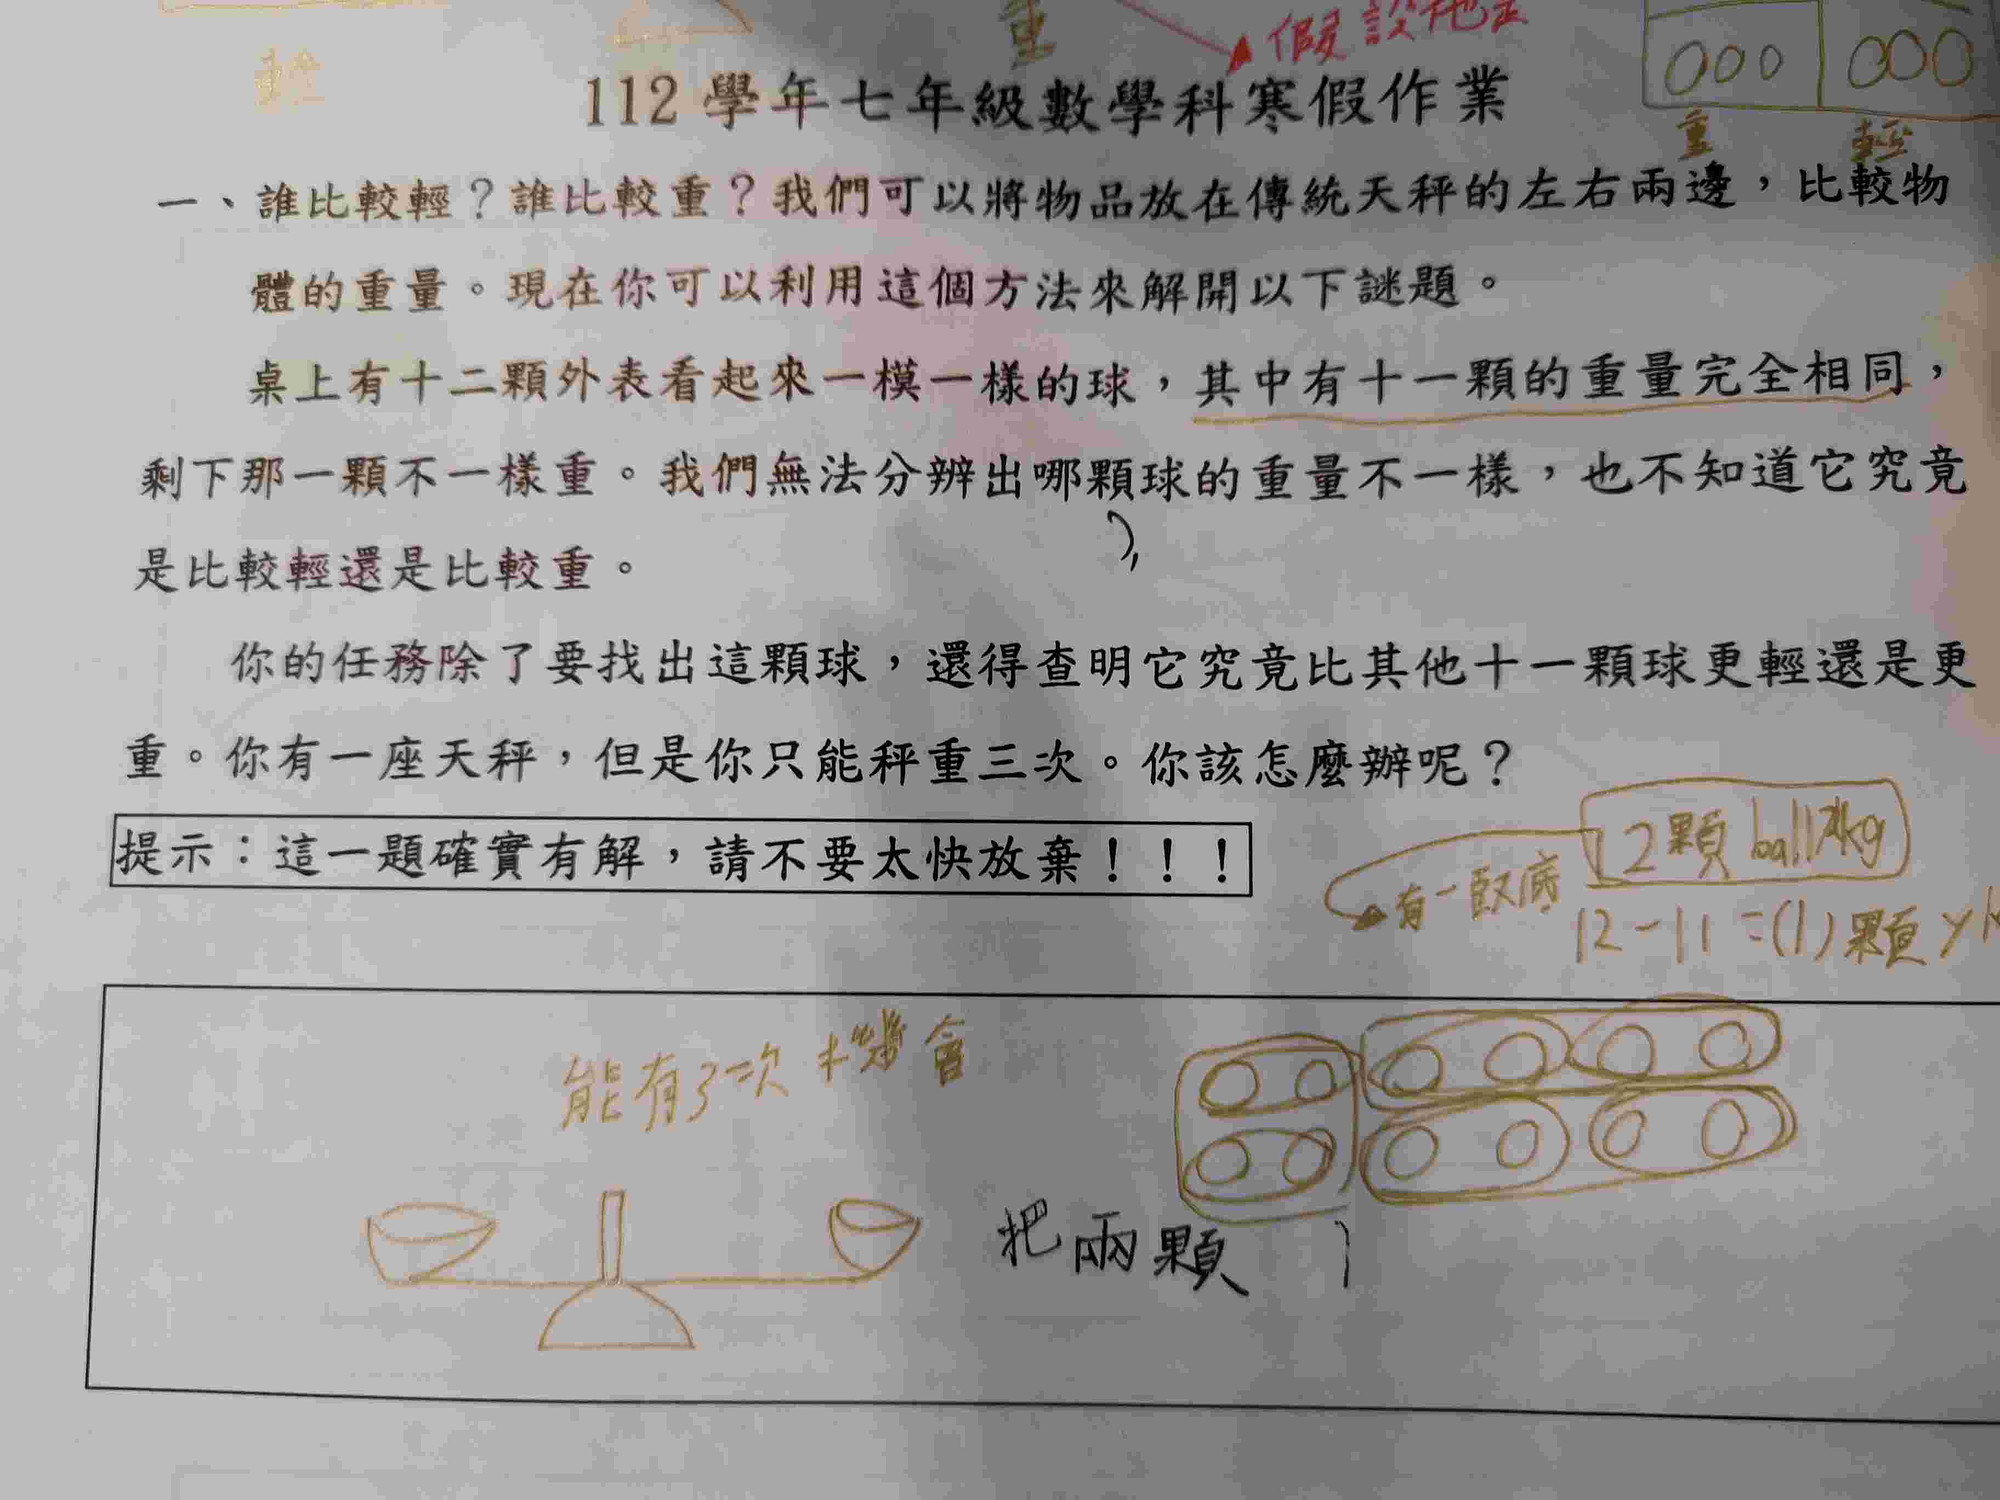 輕
重
假設
重 輕
112 學年七年級數學科寒假作業
一、誰比較輕?誰比較重?我們可以將物品放在傳統天秤的左右兩邊,比較物
體的重量。現在你可以利用這個方法來解開以下謎題。
桌上有十二顆外表看起來一模一樣的球,其中有十一顆的重量完全相同,
剩下那一顆不一樣重。我們無法分辨出哪顆球的重量不一樣,也不知道它究竟
是比較輕還是比較重。
你的任務除了要找出這顆球,還得查明它究竟比其他十一顆球更輕還是更
重。你有一座天秤,但是你只能秤重三次。你該怎麼辦呢?
提示:這一題確實有解,請不要太快放棄!!!
12顆 ball
有一臥底
12-11=(1)顆 y
能有3次機會
把兩顆